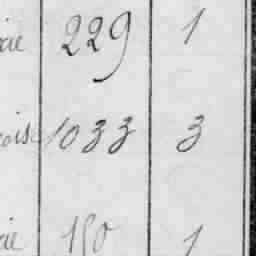 rie 229 1
çoise 1033 3
rie 150 1